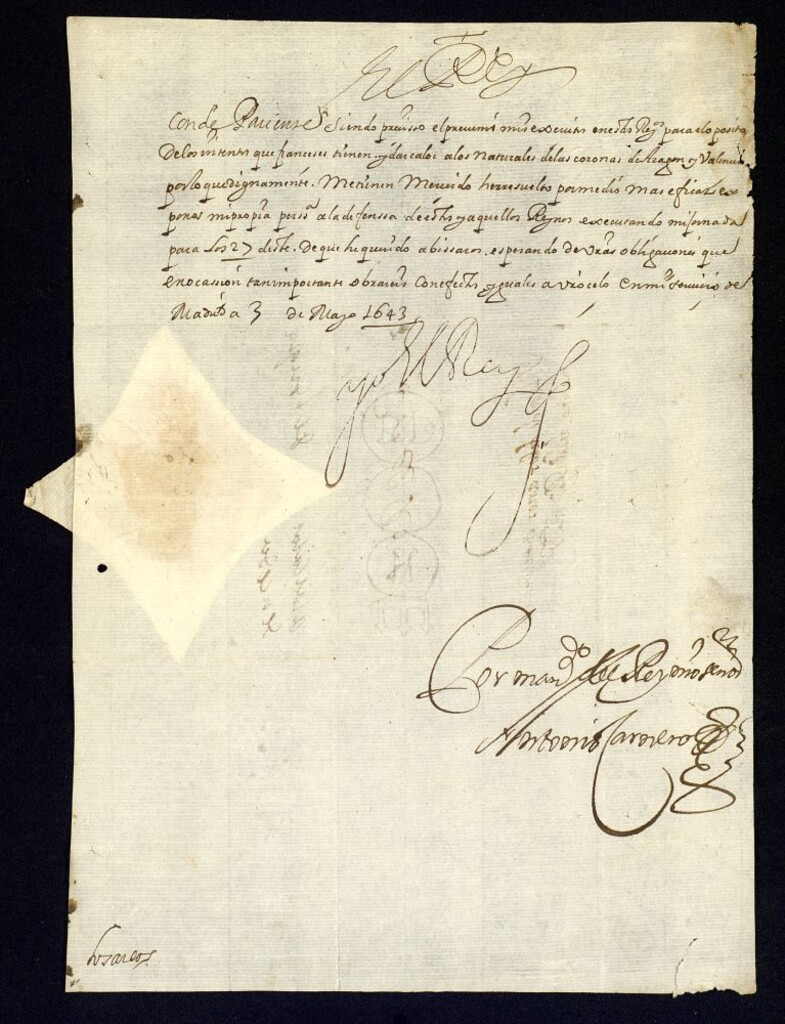 El Rey
Conde Pariente Siendo preçisso el prevenir mis exerçitos en estos Reynos para el oposito
De los intentos que franceses tienen, y dar calor a los Naturales de las coronas de Aragon y Valencia
por lo que dignamente. Me tienen Merecido he resuelto por medio mas eficaz ex
poner mi propia perssa a la defenssa de estos y aquellos Reynos executando mi jornada
para Los 27 deste. De que he querido abissaros, esperando de vras obligaciones que
en ocassion tan importante obrareis con efectos yguales a vro çelo en mi serviçio de
Madrid a 3 de Mayo 1643
yo El Rey
Por mando del Rey nro señor
Antonio Carnero
los arcos